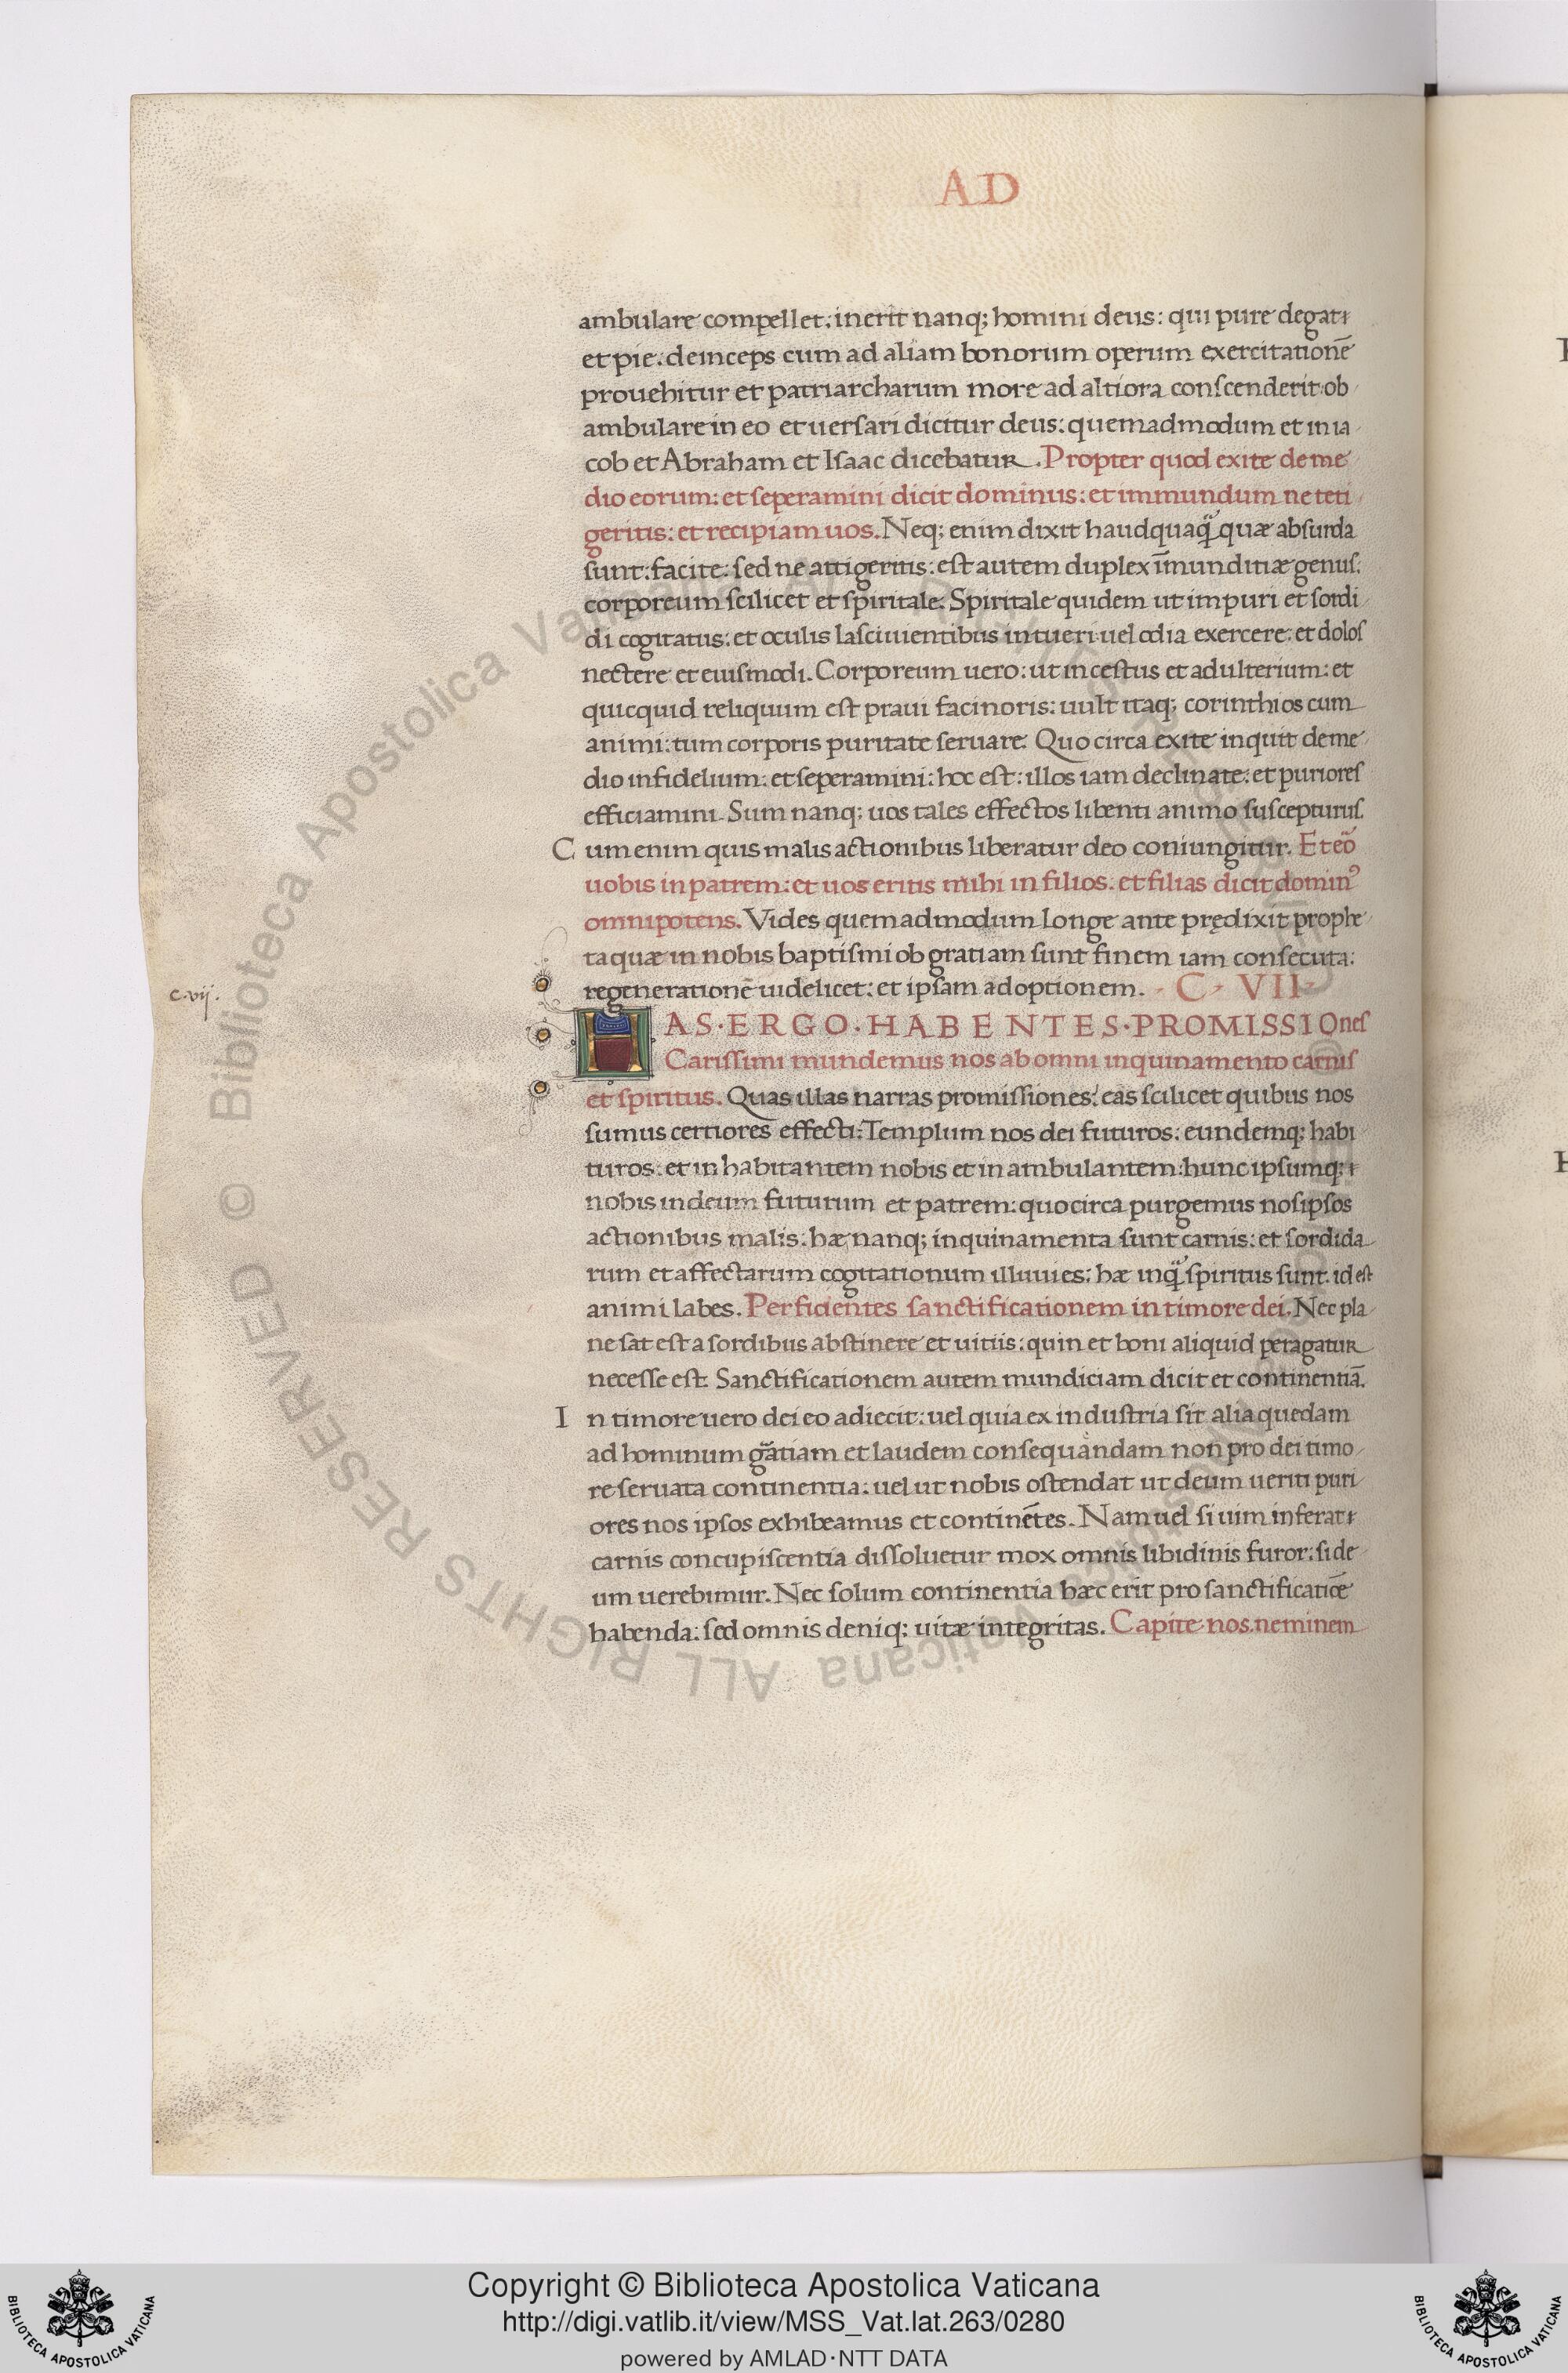 AD
ambulare compellet: inerit nanq; homini deus: qui pure degat
et pie: deinceps cum ad aliam bonorum operum exercitationē
prouehitur et patriarcharum more ad altiora conscenderit ob
ambulare in eo et uersari dicitur deus: quemadmodum et in ia
cob et Abraham et Isaac dicebatur. Propter quod exite de me
dio eorum: et seperamini dicit dominus: et immundum ne teti
geritis: et recipiam uos. Neq; enim dixit haudquaq̃ quæ absurda
sunt: facite: sed ne attigeritis: est autem duplex īmunditiæ genus:
corporeum scilicet et spiritale. Spiritale quidem ut impuri et sordi
di cogitatus: et oculis lasciuientibus intueri uel odia exercere: et dolos
nectere et eiusmodi. Corporeum uero: ut incestus et adulterium: et
quicquid reliquum est praui facinoris: uult itaq; corinthios cum
animi: tum corporis puritate seruare. Quocirca exite inquit de me
dio infidelium: et seperamini: hoc est: illos iam declinate: et puriores
efficiamini. Sum nanq; uos tales effectos libenti animo suscepturus.
Cum enim quis malis actionibus liberatur deo coniungitur. Et eō
uobis in patrem: et uos eritis mihi in filios. et filias dicit dominꝰ
omnipotens. Vides quemadmodum longe ante prędixit prophe
ta quæ in nobis baptismi ob gratiam sunt finem iam consecuta:
regenerationē uidelicet: et ipsam adoptionem. C VII
c. vij.
HAS·ERGO·HABENTES·PROMISSIOnes
Carissimi mundemus nos ab omni inquinamento carnis
et spiritus. Quas illas narras promissiones: eas scilicet quibus nos
sumus certiores effecti: Templum nos dei futuros: eundemq; habi
turos: et inhabitantem nobis et inambulantem: hunc ipsumq;
nobis in deum futurum et patrem: quocirca purgemus nos ipsos
actionibus malis: hæ nanq; inquinamenta sunt carnis: et sordida
rum et affectarum cogitationum illuuies: hæ inq̃ spiritus sunt: id est
animi labes. Perficientes sanctificationem in timore dei. Nec pla
ne sat est a sordibus abstinere et uitiis: quin et boni aliquid peragatur
necesse est. Sanctificationem autem mundiciam dicit et continentiā.
In timore uero dei eo adiecit: uel quia ex industria sit alia quedam
ad hominum gr̄atiam et laudem consequandam non pro dei timo
re seruata continentia: uel ut nobis ostendat ut deum ueriti puri
ores nos ipsos exhibeamus et continētes. Nam uel si uim inferat
carnis concupiscentia dissoluetur mox omnis libidinis furor: si de
um uerebimur. Nec solum continentia hæc erit pro sanctificatiōe
habenda: sed omnis deniq; uitæ integritas. Capite nos. neminem
© Biblioteca Apostolica Vaticana ALL RIGHTS RESERVED
Copyright © Biblioteca Apostolica Vaticana
http://digi.vatlib.it/view/MSS_Vat.lat.263/0280
powered by AMLAD·NTT DATA
BIBLIOTECA APOSTOLICA VATICANA
BIBLIOTECA APOSTOLICA VATICANA